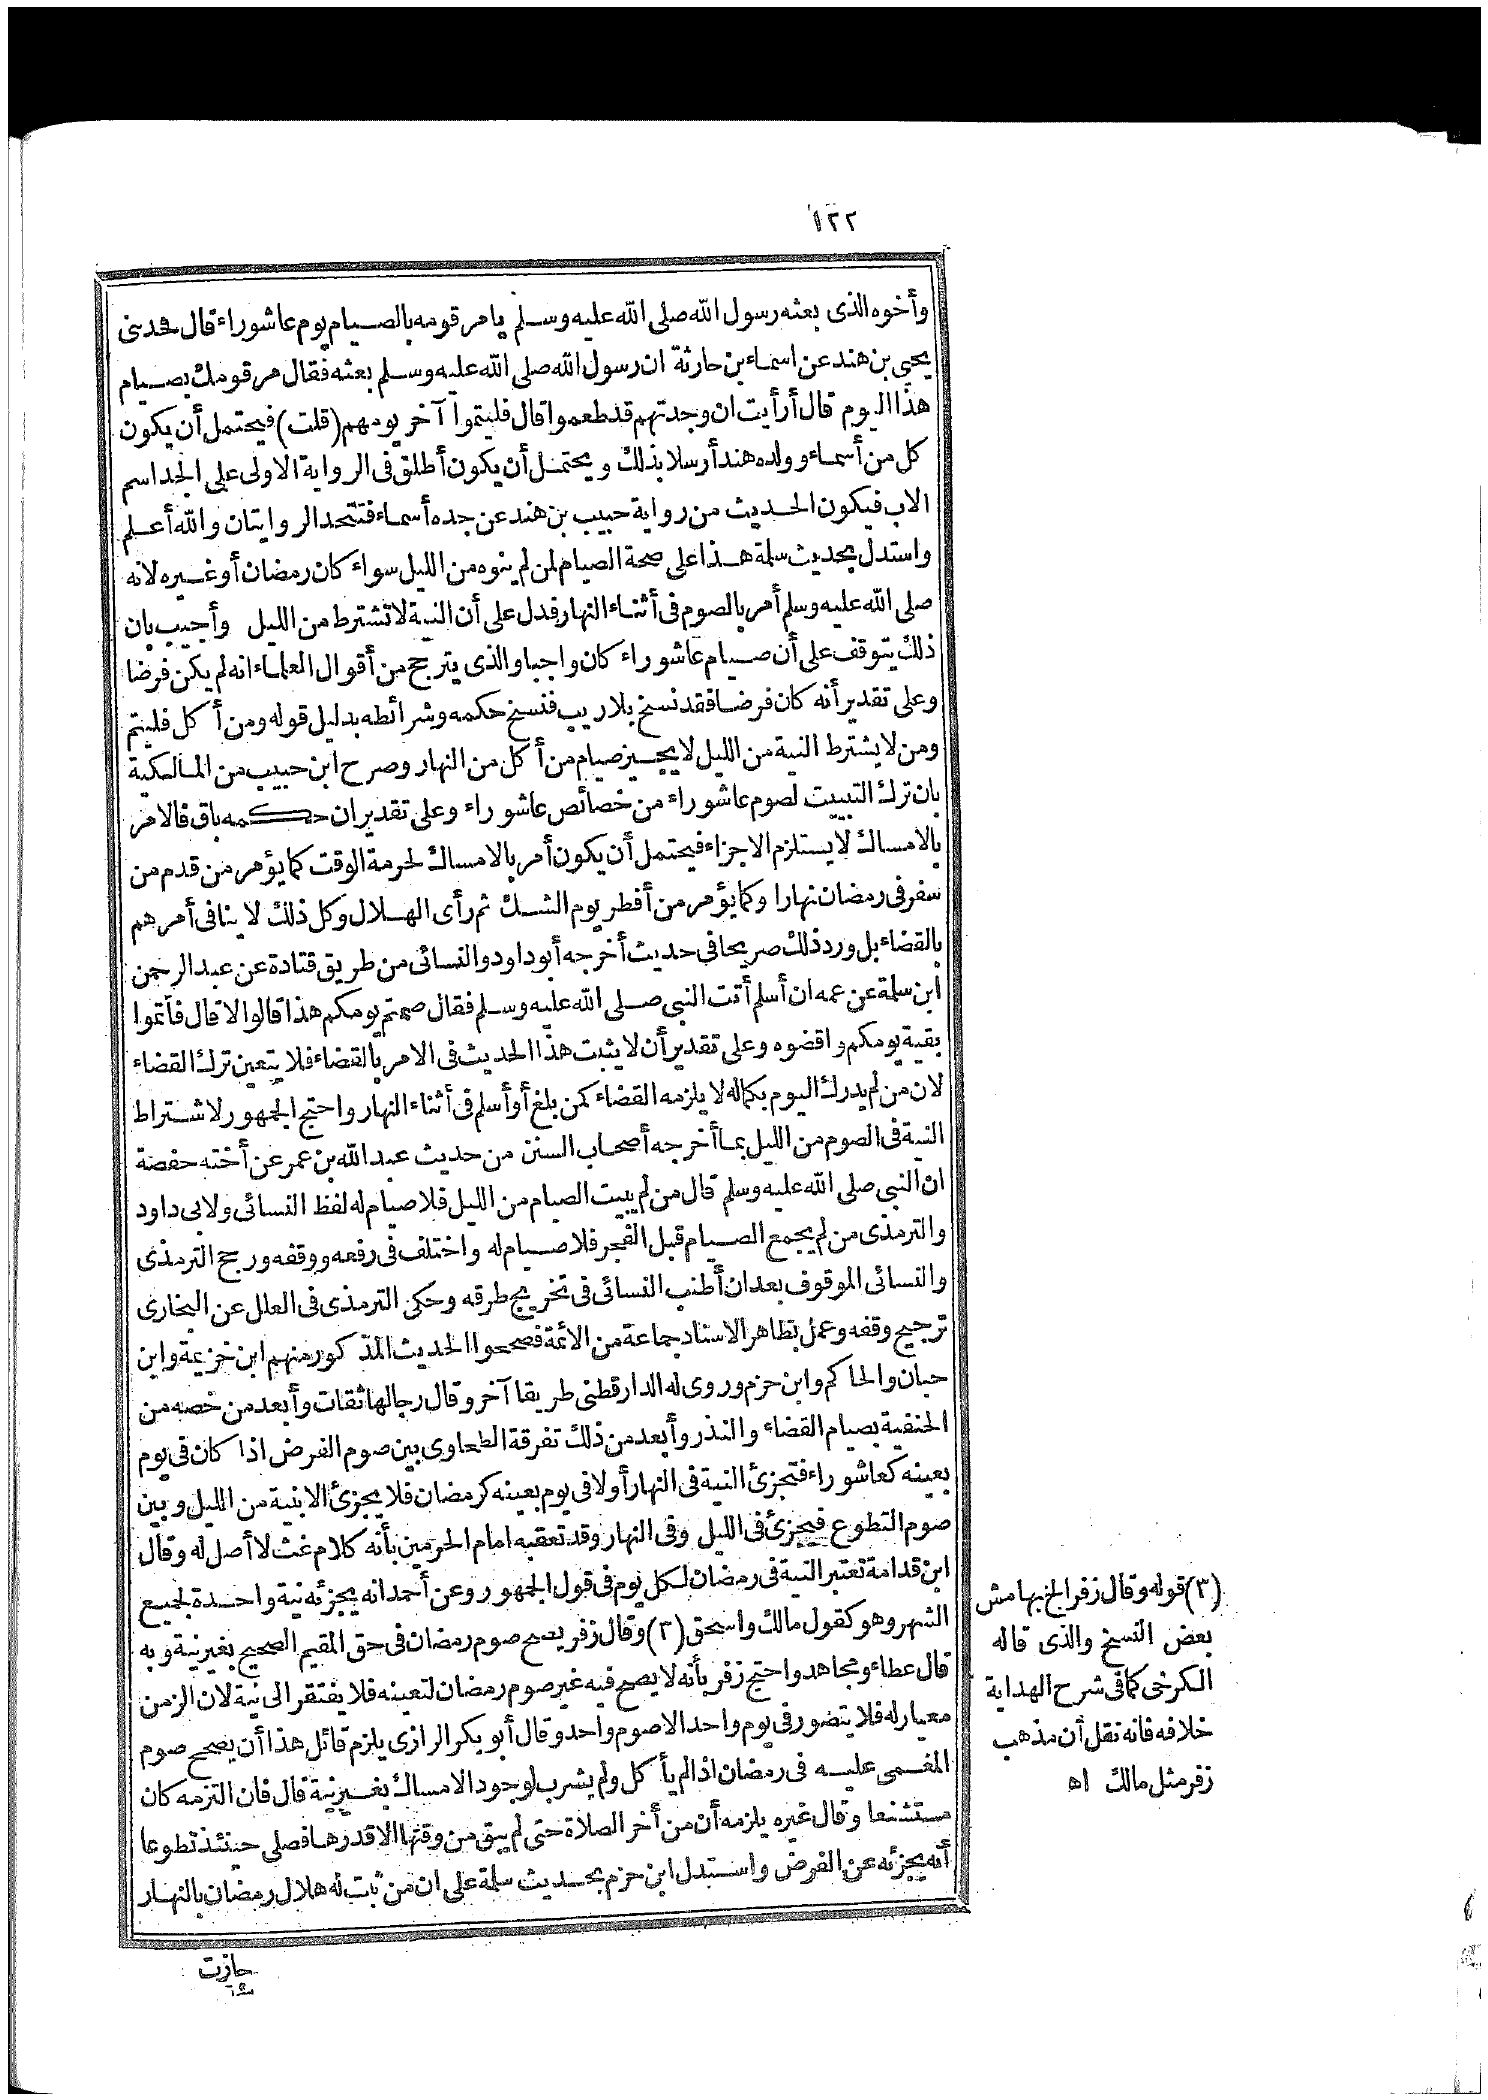 ١٢٢
وأخوه الذى بعثه رسول الله صلى الله عليه وسلم يامر قومه بالصيام يوم عاشوراء قال فحدثنى
يحيى بن هند عن اسماء بن حارثة ان رسول الله صلى الله عليه وسلم بعثه فقال مر قومك بصيام
هذا اليوم قال أرأيت ان وجدتهم قد طعموا قال فليتموا آخر يومهم (قلت) فيحتمل أن يكون
كل من أسماء وولده هند أرسلا بذلك ويحتمل أن يكون أطلق فى الرواية الاولى على الجد اسم
الاب فيكون الحديث من رواية حبيب بن هند عن جده أسماء فتتحد الروايتان والله أعلم
واستدل بحديث سلمة هذا على صحة الصيام لمن لم ينوه من الليل سواء كان رمضان أو غيره لانه
صلى الله عليه وسلم أمر بالصوم فى أثناء النهار فدل على أن النية لا تشترط من الليل وأجيب بان
ذلك يتوقف على أن صيام عاشوراء كان واجبا والذى يترجح من أقوال العلماء انه لم يكن فرضا
وعلى تقدير أنه كان فرضا فقد نسخ بلا ريب فنسخ حكمه وشرائطه بدليل قوله ومن أكل فليتم
ومن لا يشترط النية من الليل لا يجيز صيام من أكل من النهار وصرح ابن حبيب من المالكية
بان ترك التبييت لصوم عاشوراء من خصائص عاشوراء وعلى تقدير ان حكمه باق فالامر
بالامساك لا يستلزم الاجزاء فيحتمل أن يكون أمر بالامساك لحرمة الوقت كما يؤمر من قدم من
سفر فى رمضان نهارا وكما يؤمر من أفطر يوم الشك ثم رأى الهلال وكل ذلك لا ينافى أمرهم
بالقضاء بل ورد ذلك صريحا فى حديث أخرجه أبو داود والنسائى من طريق قتادة عن عبد الرحمن
ابن سلمة عن عمه ان أسلم أتت النبى صلى الله عليه وسلم فقال صمتم يومكم هذا قالوا لا قال فأتموا
بقية يومكم واقضوه وعلى تقدير أن لا يثبت هذا الحديث فى الامر بالقضاء فلا يتعين ترك القضاء
لان من لم يدرك اليوم بكماله لا يلزمه القضاء كمن بلغ أو أسلم فى أثناء النهار واحتج الجمهور لاشتراط
النية فى الصوم من الليل بما أخرجه أصحاب السنن من حديث عبد الله بن عمر عن أخته حفصة
ان النبى صلى الله عليه وسلم قال من لم يبيت الصيام من الليل فلا صيام له لفظ النسائى ولابى داود
والترمذى من لم يجمع الصيام قبل الفجر فلا صيام له واختلف فى رفعه ووقفه ورجح الترمذى
والنسائى الموقوف بعد ان أطنب النسائى فى تخريج طرقه وحكى الترمذى فى العلل عن البخارى
ترجيح وقفه وعمل بظاهر الاسناد جماعة من الائمة فصححوا الحديث المذكور منهم ابن خزيمة وابن
حبان والحاكم وابن حزم وروى له الدارقطنى طريقا آخر وقال رجالها ثقات وأبعد من خصه من
الحنفية بصيام القضاء والنذر وأبعد من ذلك تفرقة الطحاوى بين صوم الفرض اذا كان فى يوم
بعينه كعاشوراء فتجزئ النية فى النهار أولا فى يوم بعينه كرمضان فلا يجزئ الا بنية من الليل وبين
صوم التطوع فيجزئ فى الليل وفى النهار وقد تعقبه امام الحرمين بأنه كلام غث لا أصل له وقال
ابن قدامة تعتبر النية فى رمضان لكل يوم فى قول الجمهور وعن أحمد انه يجزئه نية واحدة لجميع
الشهر وهو كقول مالك واسحق (٣) وقال زفر يصح صوم رمضان فى حق المقيم الصحيح بغير نية وبه
قال عطاء ومجاهد واحتج زفر بأنه لا يصح فيه غير صوم رمضان لتعينه فلا يفتقر الى نية لان الزمن
معيار له فلا يتصور فى يوم واحد الا صوم واحد وقال أبو بكر الرازى يلزم قائل هذا أن يصحح صوم
المغمى عليه فى رمضان اذا لم يأكل ولم يشرب لوجود الامساك بغير نية قال فان التزمه كان
مستشنعا وقال غيره يلزمه أن من أخر الصلاة حتى لم يبق من وقتها الا قدرها فصلى حينئذ تطوعا
أنه يجزئه عن الفرض واستدل ابن حزم بحديث سلمة على ان من ثبت له هلال رمضان بالنهار
جازت
(٣) قوله وقال زفر الخ بهامش
بعض النسخ والذى قاله
الكرخى كما فى شرح الهداية
خلافه فانه نقل أن مذهب
زفر مثل مالك اه